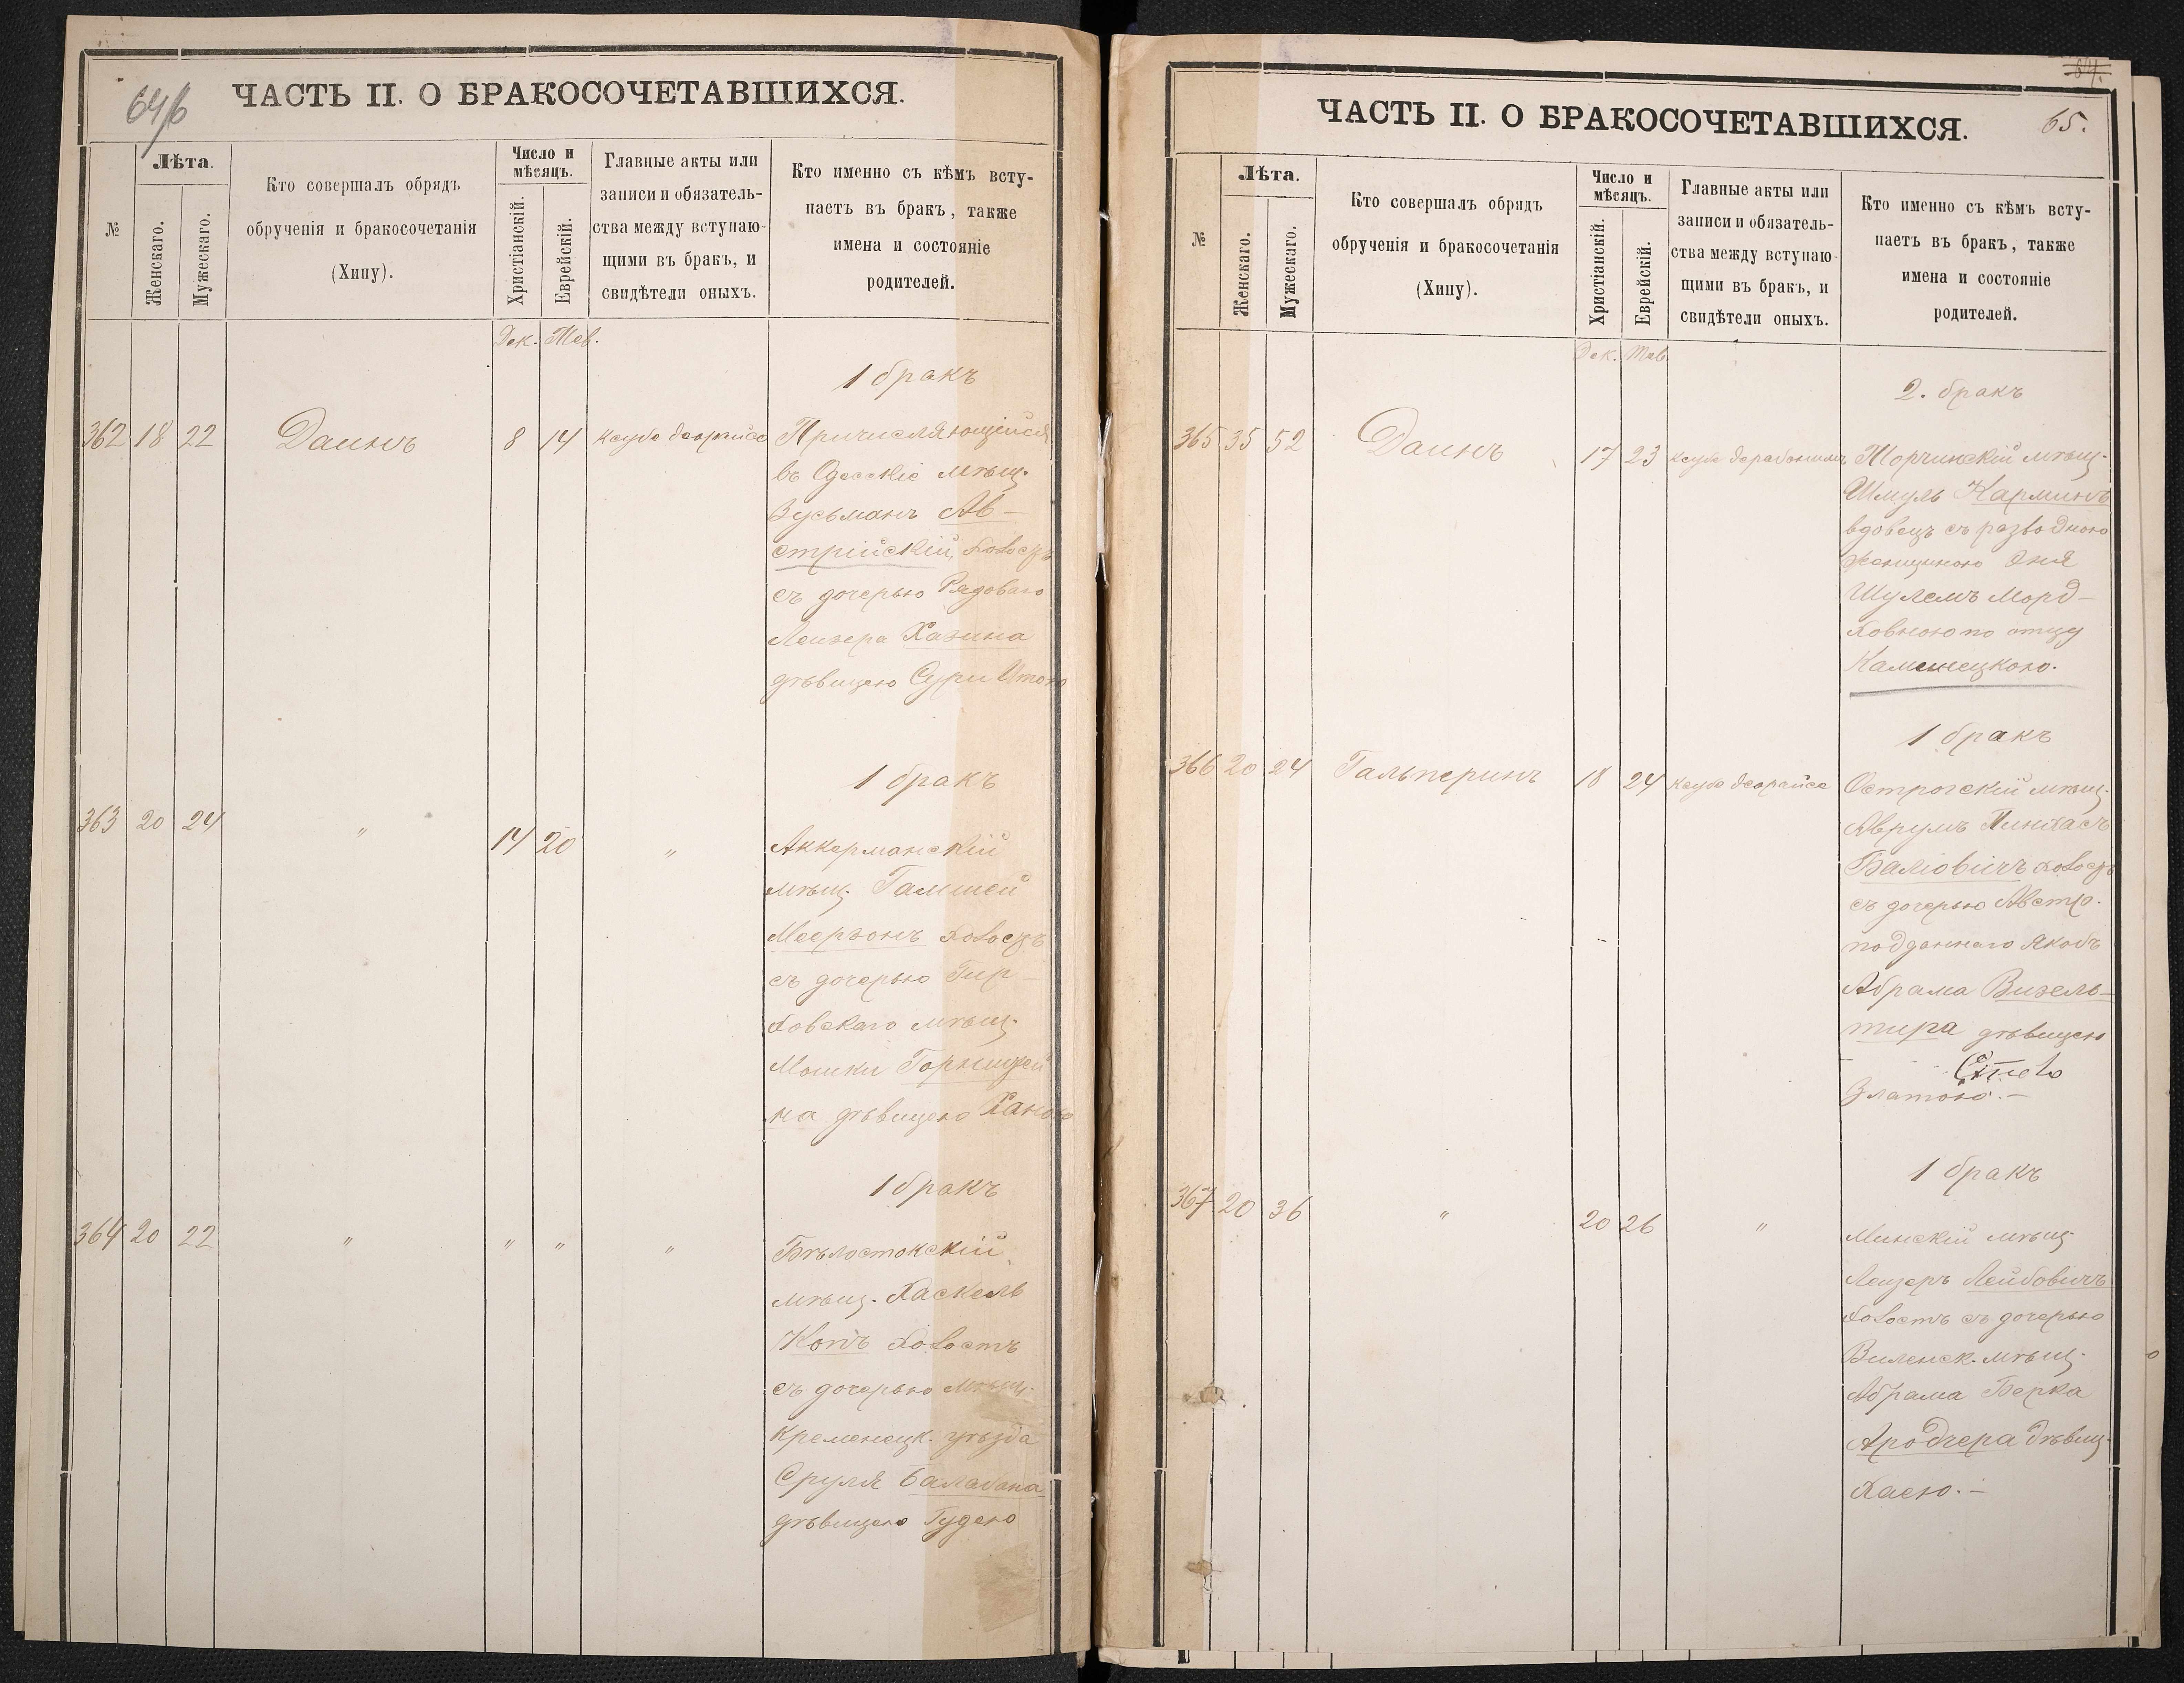 64/6
ЧАСТЬ II. О БРАКОСОЧЕТАВШИХСЯ.
№
Лѣта.
Женскаго.
Мужескаго.
Кто совершалъ обрядъ
обрученія и бракосочетанія
(Хипу).
Число и
мѣсяцъ.
Христіанскій.
Еврейскій.
Главные акты или
записи и обязатель-
ства между вступаю-
щими въ бракъ, и
свидѣтели оныхъ.
Кто именно съ кѣмъ всту-
паетъ въ бракъ, также
имена и состояніе
родителей.
Дек. Тев.
1 бракъ
362 18 22 Даинъ 8 14 ксубе деорайсе Причисляющійся
въ Одесскіе мѣщ.
Зусьманъ Ав-
стрійскій, холостъ
съ дочерью Рядоваго
Лейзера Хазина
дѣвицею Сури Итою
1 бракъ
363 20 24 " 14 20 " Аккерманскій
мѣщ. Гамшей
Меерзонъ холостъ
съ дочерью Тир-
ховскаго мѣщ.
Мошки
на дѣвицею Ханою
1 бракъ
364 20 22 " " " " Бѣлостокскій
мѣщ. Хаскель
Копъ холостъ
съ дочерью мѣщ.
Кременецк. уѣзда
Сруля Балабана
дѣвицею Гудею
64.
65.
ЧАСТЬ II. О БРАКОСОЧЕТАВШИХСЯ.
№
Лѣта.
Женскаго.
Мужескаго.
Кто совершалъ обрядъ
обрученія и бракосочетанія
(Хипу).
Число и
мѣсяцъ.
Христіанскій.
Еврейскій.
Главные акты или
записи и обязатель-
ства между вступаю-
щими въ бракъ, и
свидѣтели оныхъ.
Кто именно съ кѣмъ всту-
паетъ въ бракъ, также
имена и состояніе
родителей.
Дек. Тев.
2. бракъ
365 35 52 Даинъ 17 23 ксубе дерабонимъ Торчинскій мѣщ.
Шмуль Карминъ
вдовецъ съ разводною
женщиною Эня
Шулемъ Морд-
ковною по отцу
Каменецкою.
1 бракъ
366 20 24 Гальперинъ 18 24 ксубе деорайсе Острогскій мѣщ.
Аврумъ Пинхасъ
Баліовичъ холостъ
съ дочерью Австр.
подданнаго Якобъ
Абрама Визель-
тира дѣвицею
Златою.-
1 бракъ
367 20 36 " 20 26 " Минскій мѣщ.
Лейзеръ Лейбовичъ
холостъ съ дочерью
Виленск. мѣщ.
Абрама Берка
дѣвиц.
Хасею.-